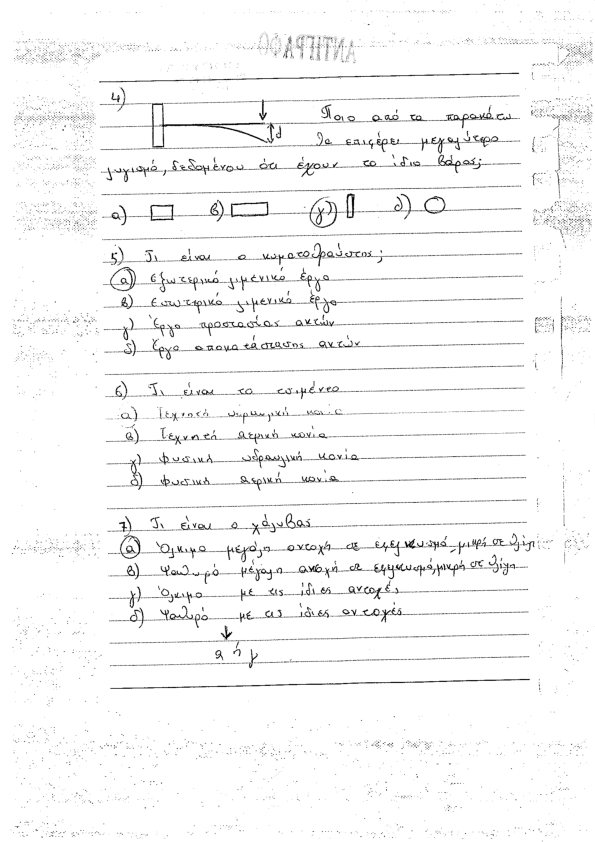 ΑΝΤΙΓΡΑΦΟ
4) d Ποιο από τα παρακάτω
θα επιφέρει μεγαλύτερο
λυγισμό, δεδομένου ότι έχουν το ίδιο βάρος;
α) β) γ) δ)
5) Τι είναι ο κυματοθραύστης;
α) εξωτερικό λιμενικό έργο
β) εσωτερικό λιμενικό έργο
γ) Έργο προστασίας ακτών
δ) Έργο αποκατάστασης ακτών
6) Τι είναι το τσιμέντο
α) Τεχνητή υδραυλική κονία
β) Τεχνητή αερική κονία
γ) Φυσική υδραυλική κονία
δ) Φυσική αερική κονία
7) Τι είναι ο χάλυβας
α) Όλκιμο μεγάλη αντοχή σε εφελκυσμό, μικρή σε θλίψη
β) Ψαθυρό μεγάλη αντοχή σε εφελκυσμό, μικρή σε θλίψη
γ) Όλκιμο με τις ίδιες αντοχές
δ) Ψαθυρό με τις ίδιες αντοχές
α ή γ